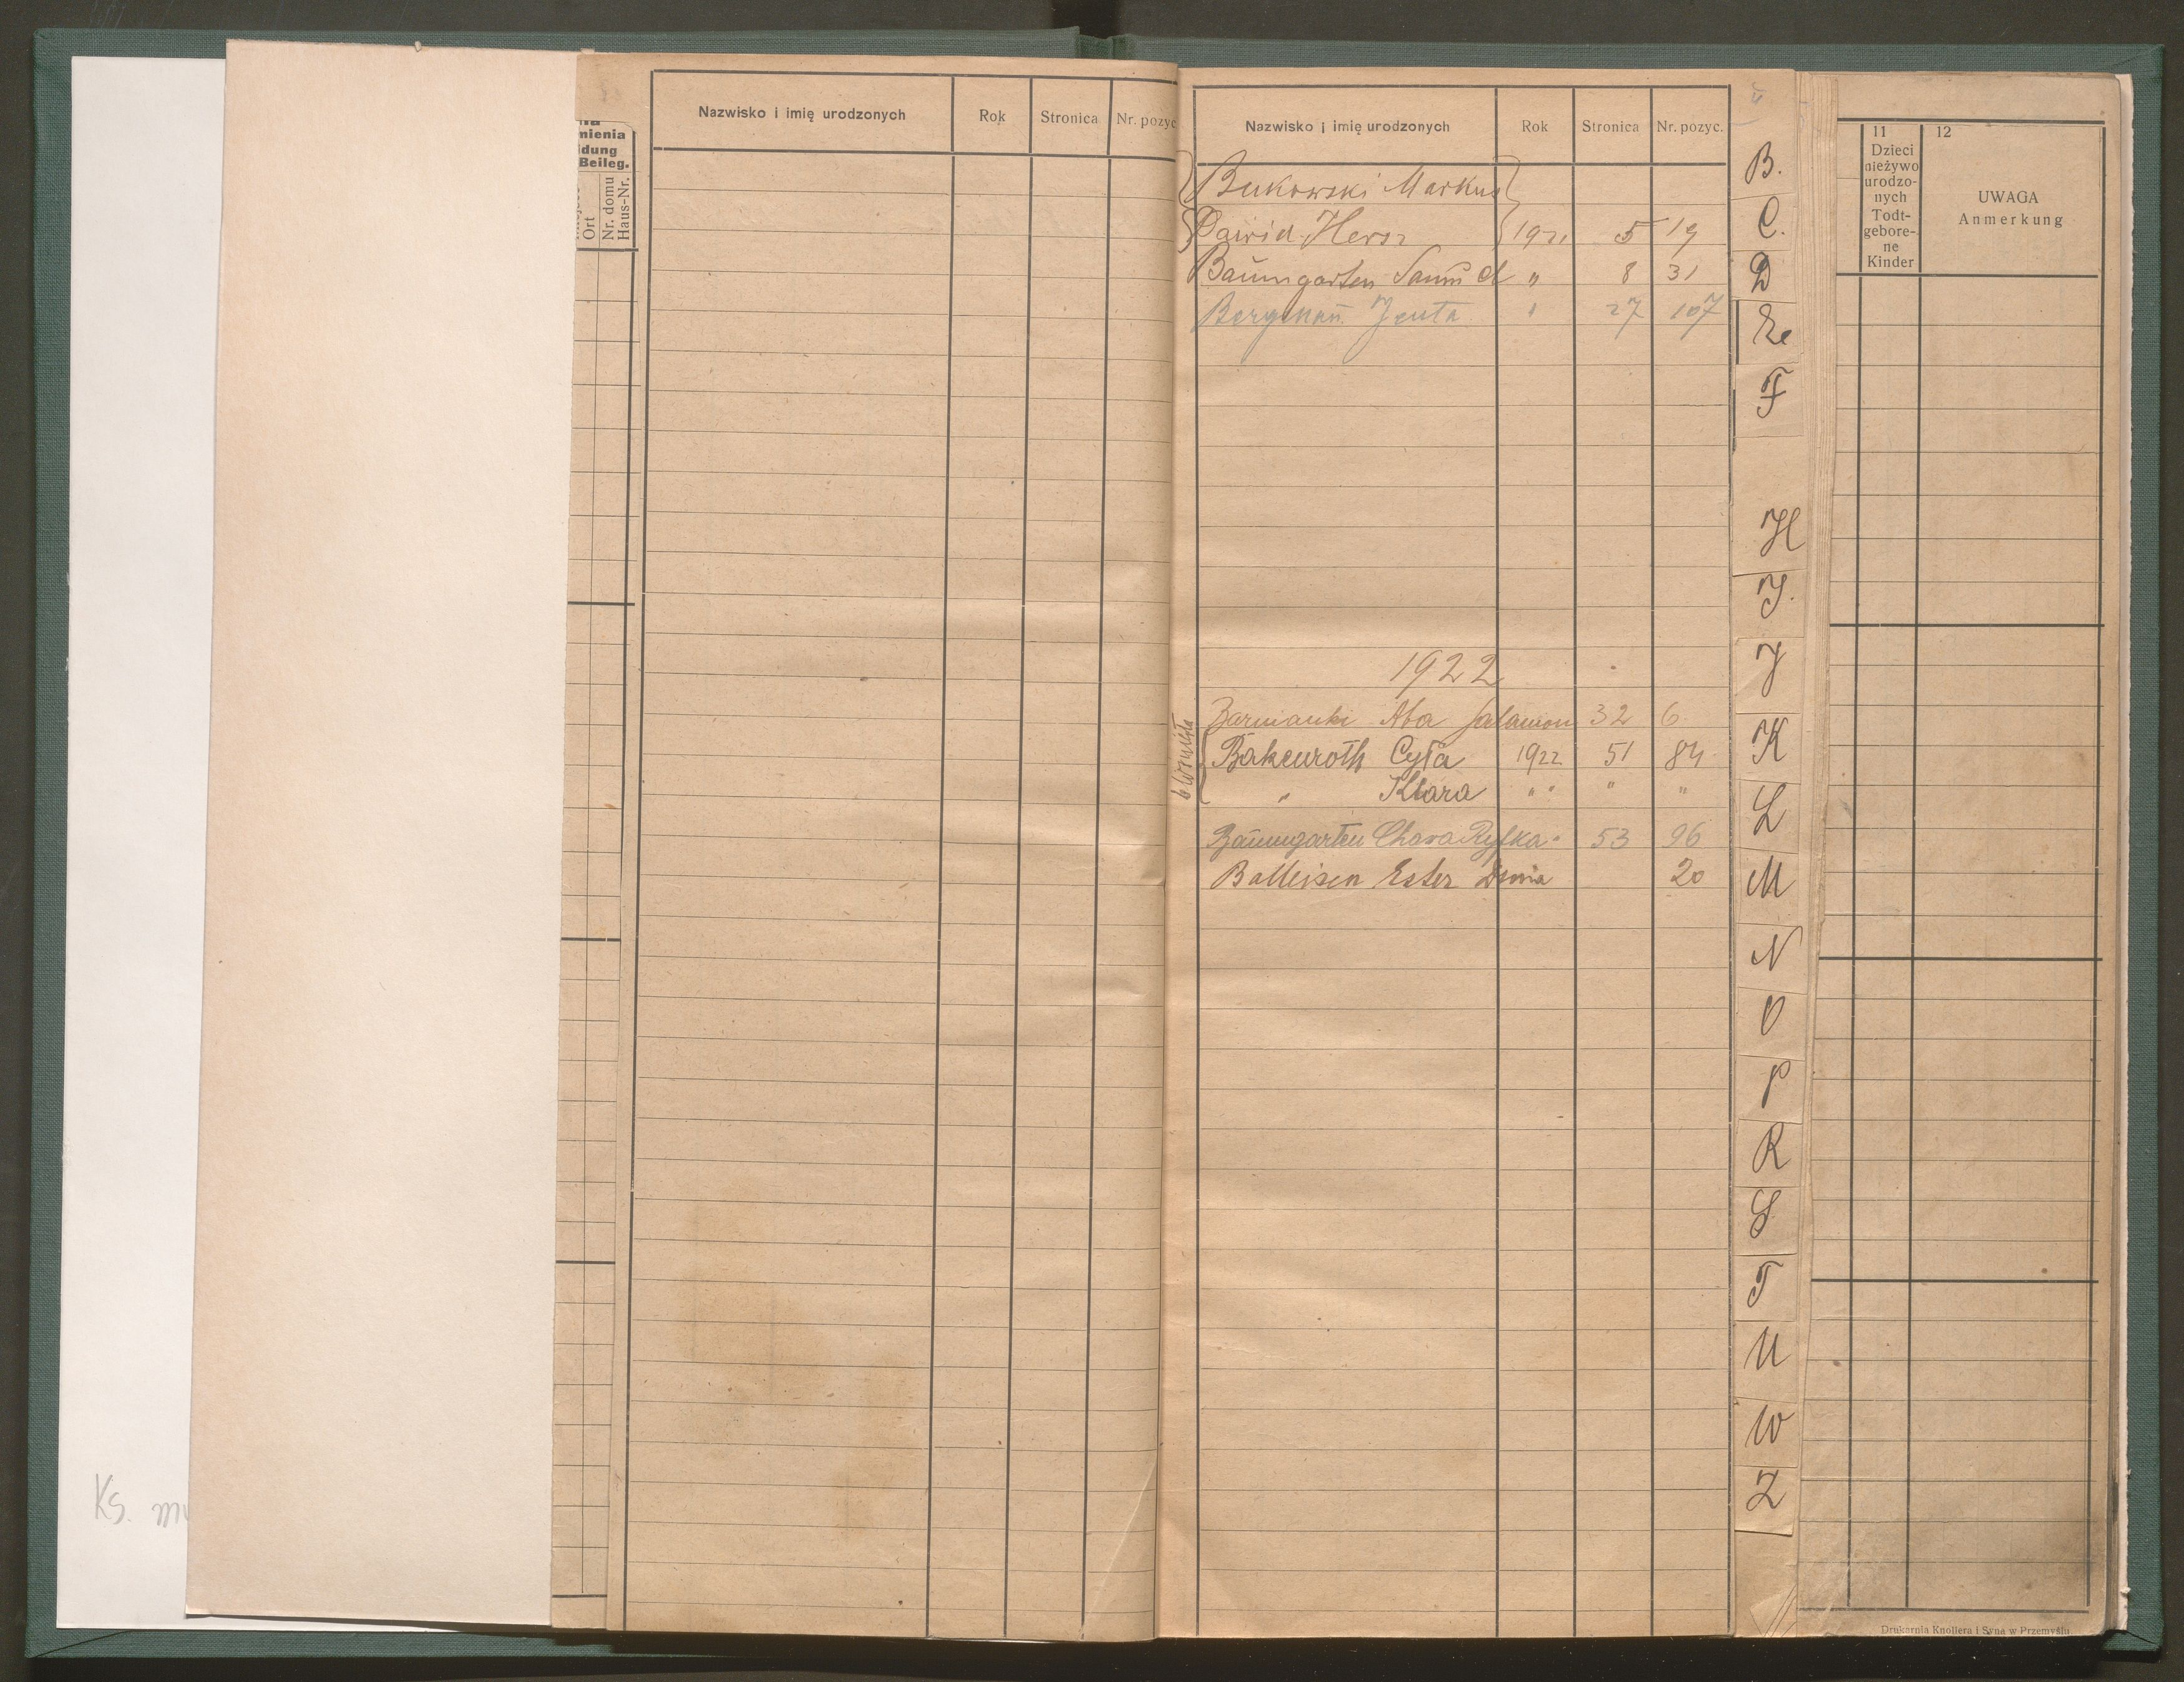 mienia
dung
Beileg.
Ort
Nr. domu
Haus-Nr.
Nazwisko i imię urodzonych Rok Stronica Nr. pozyc
Nazwisko i imię urodzonych Rok Stronica Nr. pozyc.
Bukowski Markus
Dawid Hersz 1921 5 19
Baumgarten Samuel " 8 31
Bergman Jeuta " 27 107
1922
Barmanki Aba Salamon 32 6
bliźnięta
Bakenroth Cyla 1922 51 84
" Klara " " " "
Baumgarten Chasa Ryfka " 53 96
Balleisen Ester 20
B.
C.
D
F
H
J.
J
K
L
M
N
O
P
R
S
T
U
W
Z
11
Dzieci
nieżywo
urodzo-
nych
Todt-
gebore-
ne
Kinder
12
UWAGA
Anmerkung
Ks.
Drukarnia Knollera i Syna w Przemyślu.